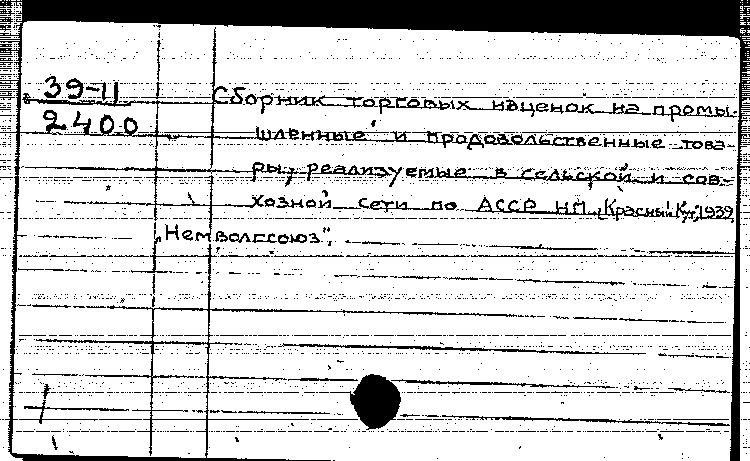 39-11
2400
Сборник торговых наценок на промы-
шленные и продовольственные това-
ры, реализуемые в сельской и сов-
хозной сети по АССР НП, [Красный Кут], 1939.
„Немволгсоюз".